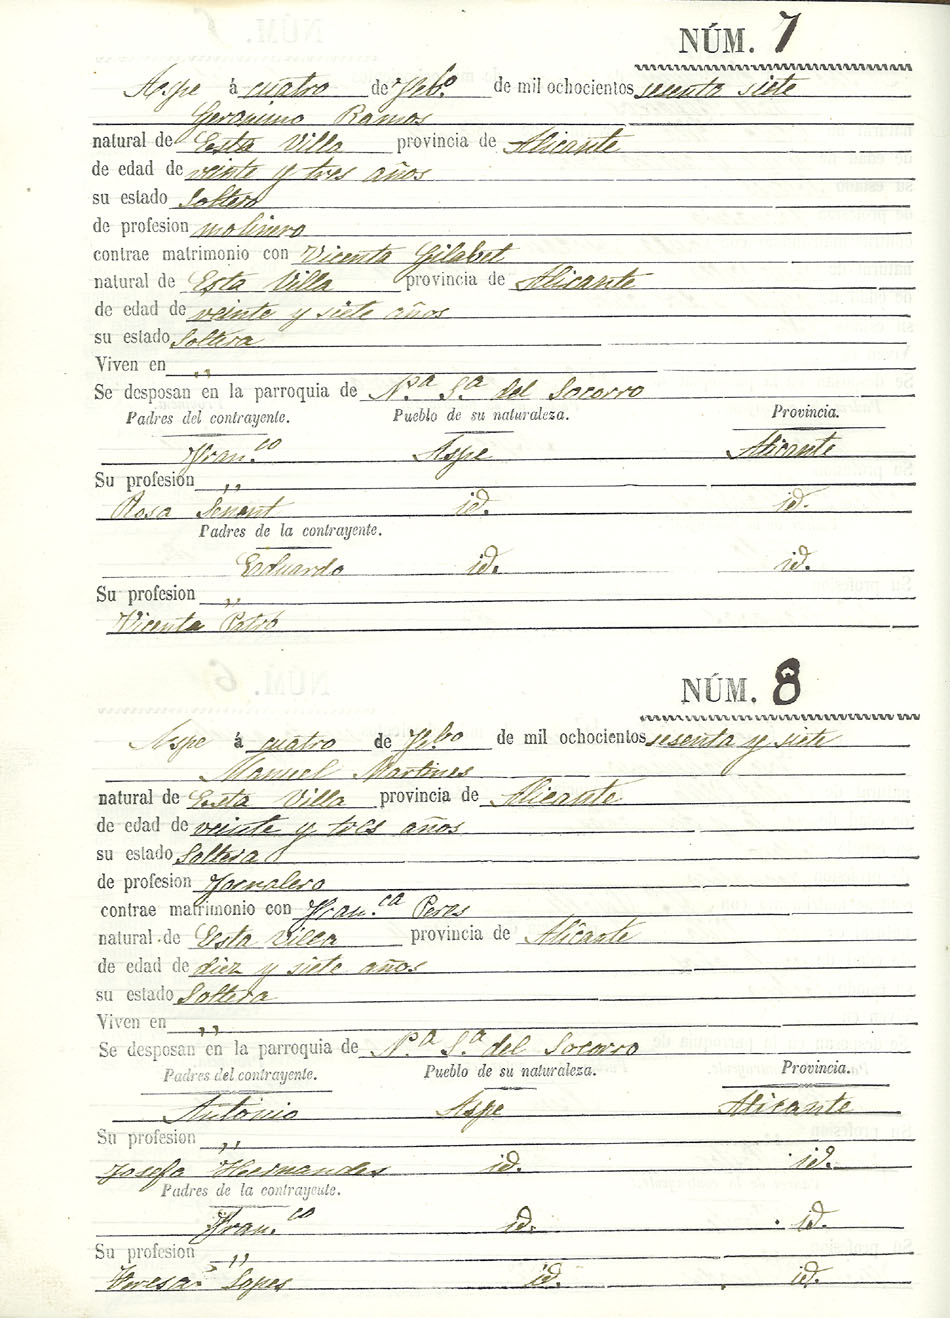 NÚM. 7
Aspe á cuatro de Feb.º de mil ochocientos sesenta siete
Geronimo Ramos
natural de Esta Villa provincia de Alicante
de edad de veinte y tres años
su estado Soltero
de profesion molinero
contrae matrimonio con Vicenta Gilabet
natural de Esta Villa provincia de Alicante
de edad de veinte y siete años
su estado Soltera
Viven en ,,
Se desposan en la parroquia de N.ª S.ª del Socorro
Padres del contrayente. Pueblo de su naturaleza. Provincia.
Fran.co Aspe Alicante
Su profesion ,,
Rosa id. id.
Padres de la contrayente.
Eduardo id. id.
Su profesion ,,
Vicenta
NÚM. 8
Aspe á cuatro de Feb.º de mil ochocientos sesenta y siete
Manuel Martines
natural de Esta Villa provincia de Alicante
de edad de veinte y tres años
su estado Soltera
de profesion Jornalero
contrae matrimonio con Fran.ca Peres
natural de Esta Villa provincia de Alicante
de edad de diez y siete años
su estado Soltera
Viven en ,,
Se desposan en la parroquia de N.ª S.ª del Socorro
Padres del contrayente. Pueblo de su naturaleza. Provincia.
Antonio Aspe Alicante
Su profesion ,,
Josefa Hernandes id. id.
Padres de la contrayente.
Fran.co id. id.
Su profesion ,,
Teresa Lopes id. id.